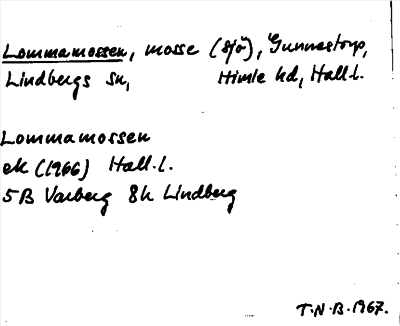 Lommamossen, mosse (sjö), Gunnestorp,
Lindbergs sn, Himle hd, Hall.l.
Lommamossen
ek (1966) Hall.l.
5B Varberg 8h Lindberg
T.N.B. 1967.